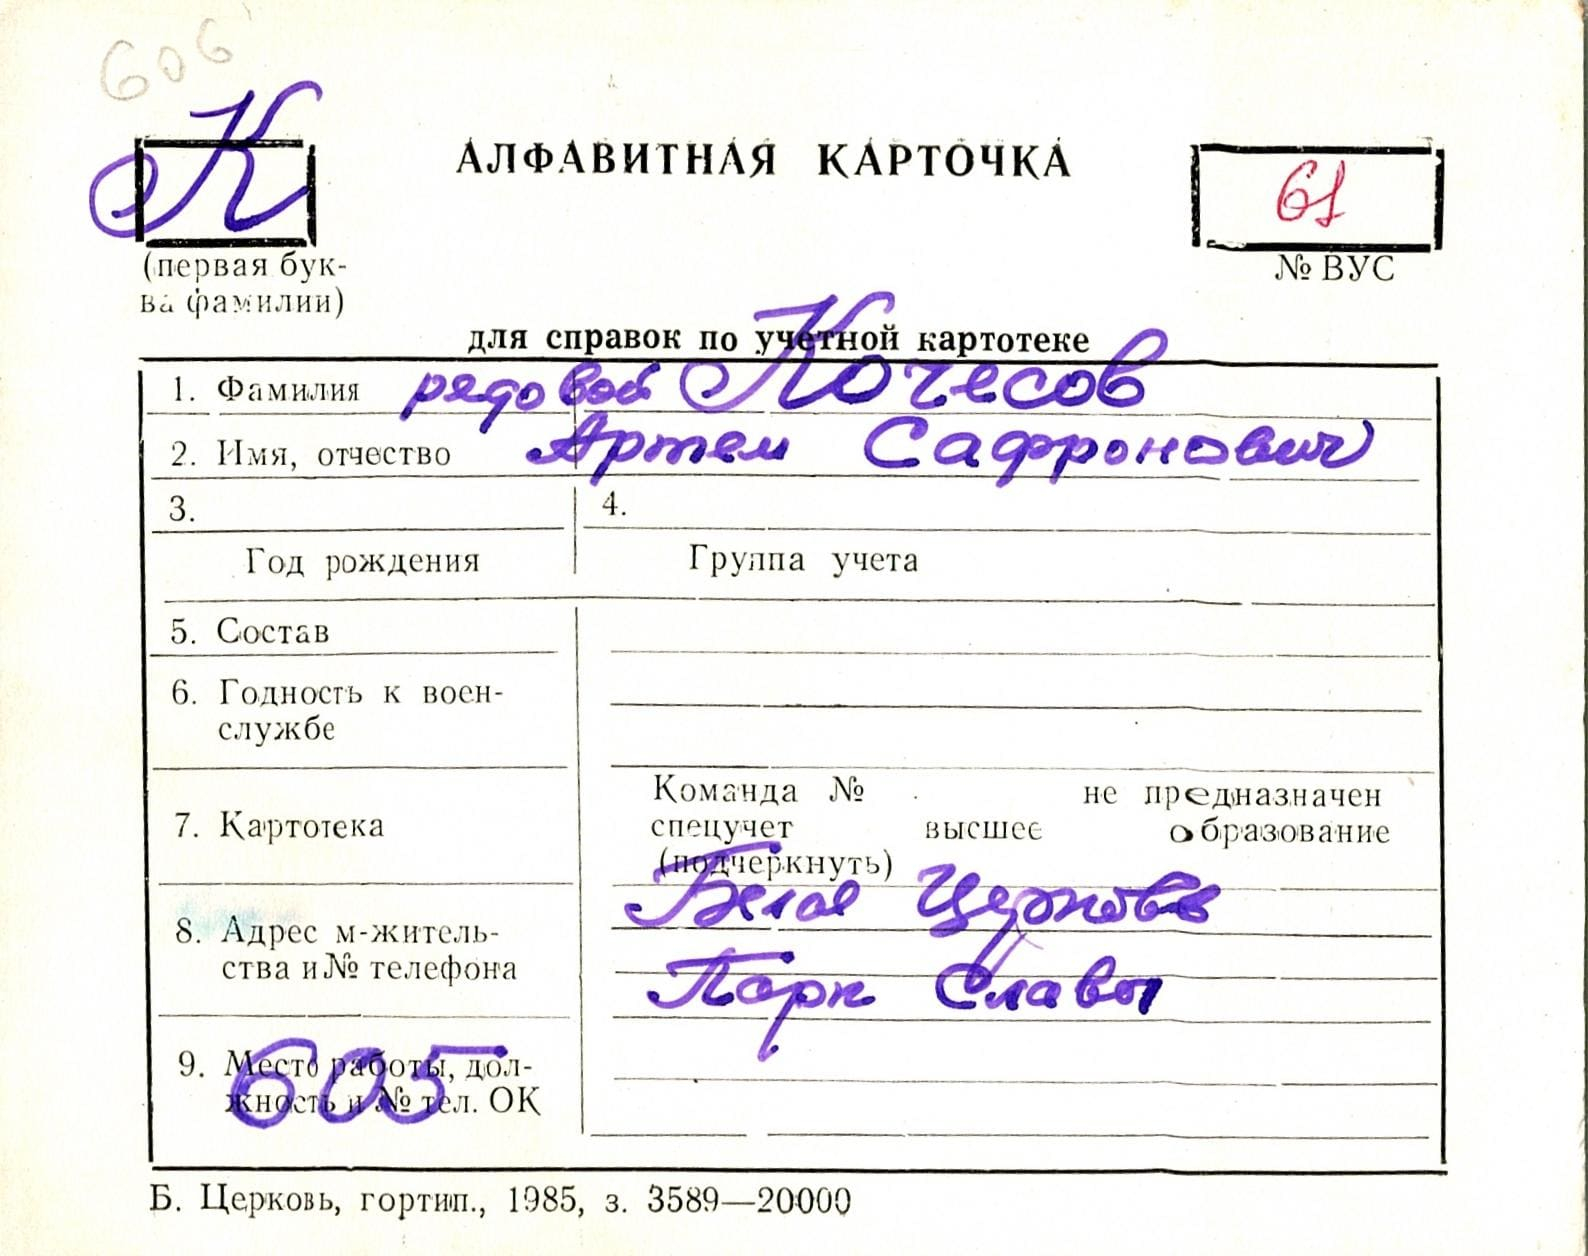 606
К
АЛФАВИТНАЯ КАРТОЧКА
61
(первая бук-
ва фамилии)
№ ВУС
для справок по учетной картотеке
1. Фамилия рядовой Кочесов
2. Имя, отчество Артем Сафронович
3.
4.
Год рождения
Группа учета
5. Состав
6. Годность к воен-
службе
7. Картотека
Команда № не предназначен
спецучет высшее образование
(подчеркнуть)
8. Адрес м-житель-
ства и № телефона
Белая Церковь
Парк Славы
9. Место работы, дол-
жность и № тел. ОК
605
Б. Церковь, гортип., 1985, з. 3589—20000